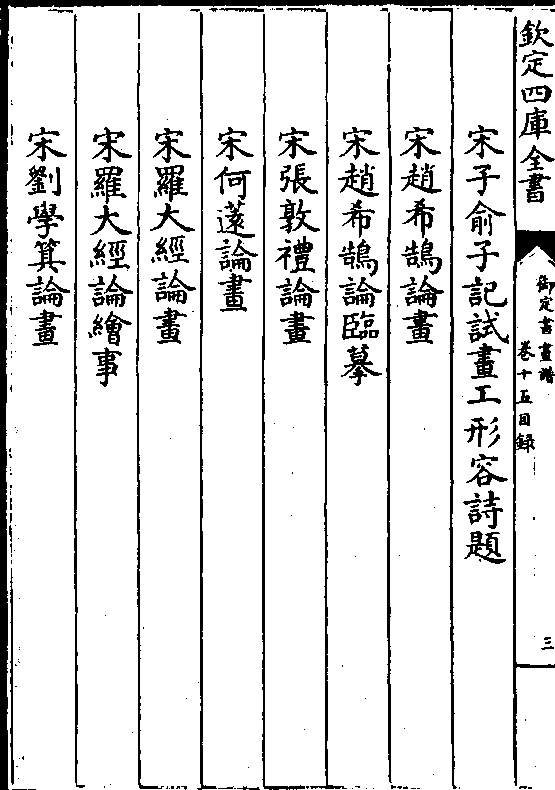 欽定四庫全書
御定書畫譜
卷十五目録
三
宋子俞子記試畫工形容詩題
宋趙希鵠論畫
宋趙希鵠論臨摹
宋張敦禮論畫
宋何薳論畫
宋羅大經論畫
宋羅大經論繪事
宋劉學箕論畫